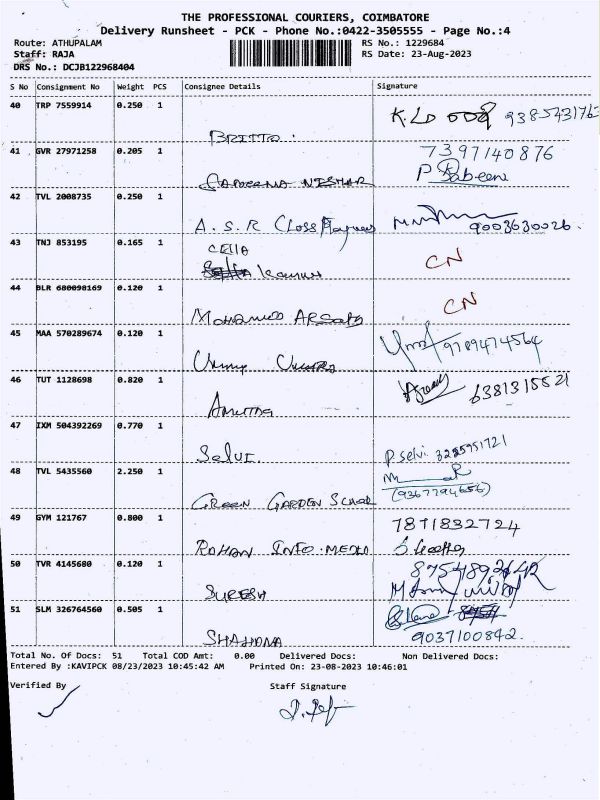 THE PROFESSIONAL COURIERS, COIMBATORE
Delivery Runsheet - PCK - Phone No.:0422-3505555 - Page No.:4
Route: ATHUPALAM RS No.: 1229684
Staff: RAJA RS Date: 23-Aug-2023
DRS No.: DCJB122968404
S No Consignment No Weight PCS Consignee Details Signature
40 TRP 7559914 0.250 1
BRITTO.
41 GVR 27971258 0.205 1 7397140876
P Sabeena
42 TVL 2008735 0.250 1
A.S.R 9003630026.
43 TNJ 853195 0.165 1 CN
44 BLR 680098169 0.120 1 CN
MOHAMED
45 MAA 570289674 0.120 1 9789474564
46 TUT 1128698 0.820 1 6381315521
47 IXM 504392269 0.770 1
SELVI. P. Selvi
48 TVL 5435560 2.250 1
GREEN GARDEN
49 GYM 121767 0.800 1 7871832724
ROHAN INFO.MEDIA
50 TVR 4145680 0.120 1
SURESH
51 SLM 326764560 0.505 1
SHAHANA 9037100842.
Total No. Of Docs: 51 Total COD Amt: 0.00 Delivered Docs: Non Delivered Docs:
Entered By :KAVIPCK 08/23/2023 10:45:42 AM Printed On: 23-08-2023 10:46:01
Verified By Staff Signature